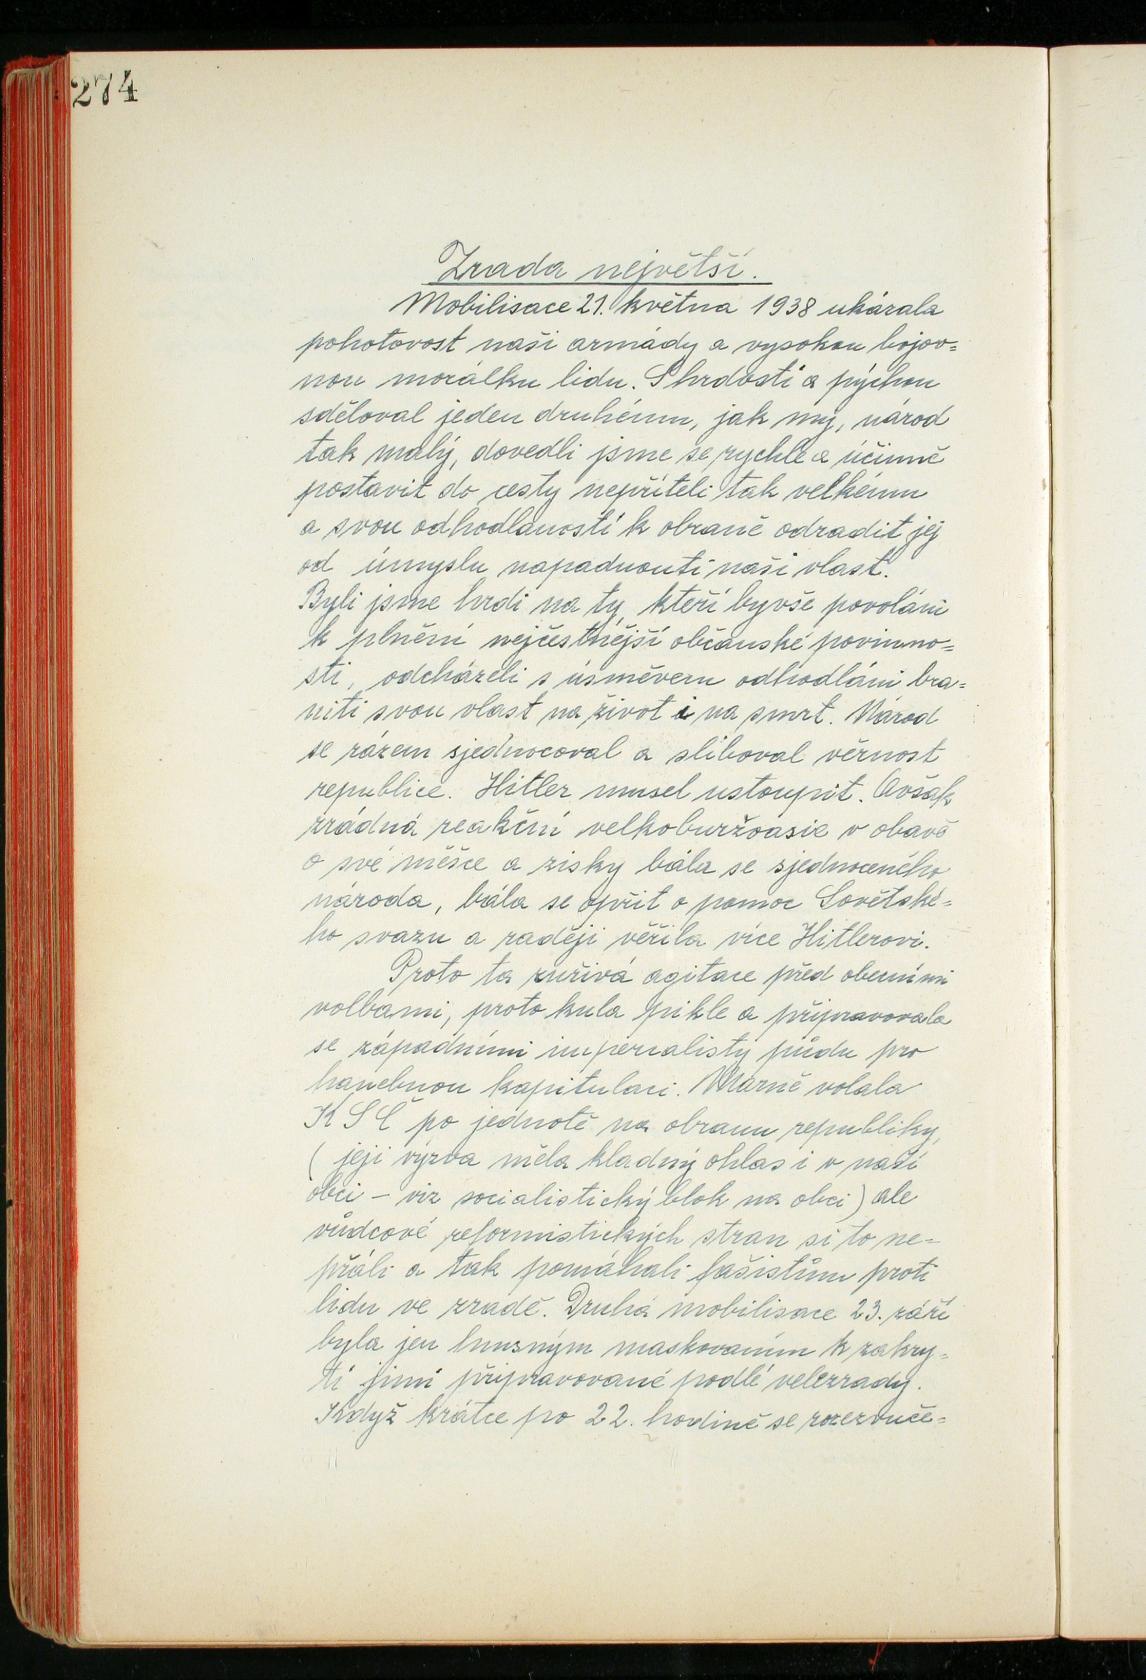 274
Zrada největší.
Mobilisace 21. května 1938 ukázala
pohotovost naší armády a vysokou bojov=
nou morálku lidu. S hrdostí a pýchou
sděloval jeden druhému, jak my, národ
tak malý, dovedli jsme se rychle a účinně
postavit do cesty nepříteli tak velkému
a svou odhodlaností k obraně odradit jej
od úmyslu napadnouti naši vlast.
Byli jsme hrdi na ty, kteří byvše povoláni
k plnění nejčestnější občanské povinno=
sti, odcházeli s úsměvem odhodláni brá=
niti svou vlast na život i na smrt. Národ
se rázem sjednocoval a sliboval věrnost
republice. Hitler musel ustoupit. Avšak
zrádná reakční velkoburžoasie v obavě
o své měšce a zisky bála se sjednoceného
národa, bála se opřít o pomoc Sovětské=
ho svazu a raději věřila více Hitlerovi.
Proto ta zuřivá agitace před obecními
volbami, proto kula pikle a připravovala
se západními imperialisty půdu pro
hanebnou kapitulaci. Marně volala
KSČ po jednotě na obranu republiky,
(její výzva měla kladný ohlas i v naší
obci – viz socialistický blok na obci) ale
vůdcové reformistických stran si to ne=
přáli a tak pomáhali fašistům proti
lidu ve zradě. Druhá mobilisace 23. září
byla jen hnusným maskováním k zakry=
tí jimi připravované podlé velezrady.
Když krátce po 22. hodině se rozezvuče=